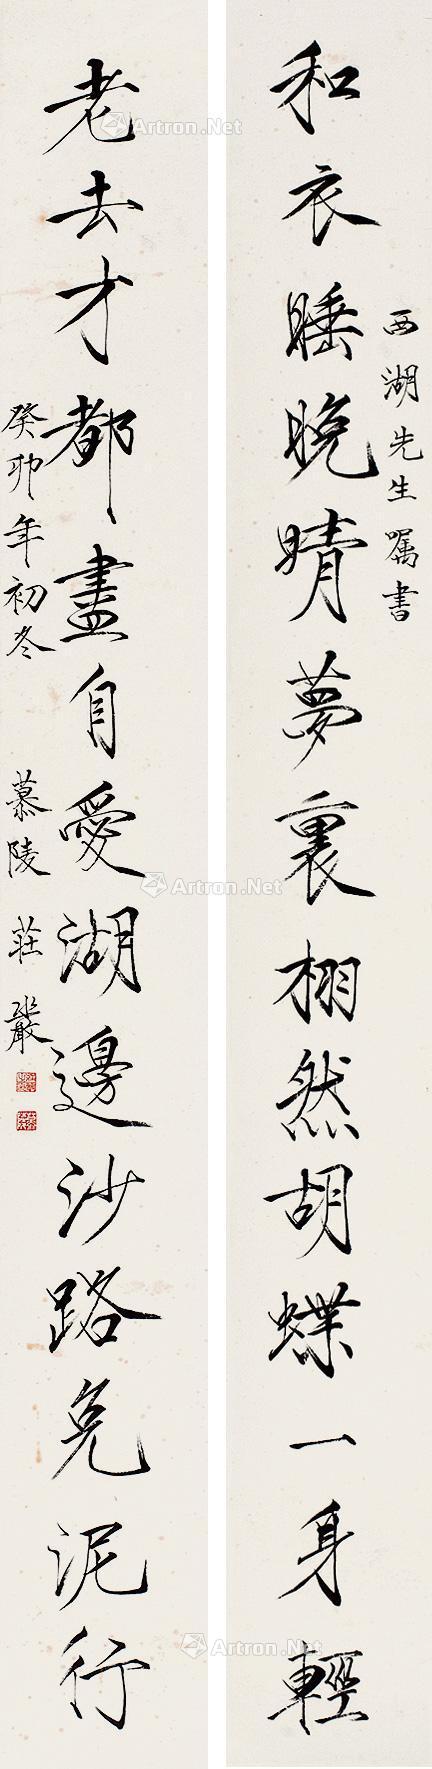 西湖先生嘱書
和衣睡晚晴夢裏栩然胡蝶一身輕
老去才都盡自愛湖邊沙路免泥行
癸卯年初冬 慕陵 莊嚴
Artron.Net
Artron.Net
Artron.Net
Artron.Net
Artron.Net
Artron.Net